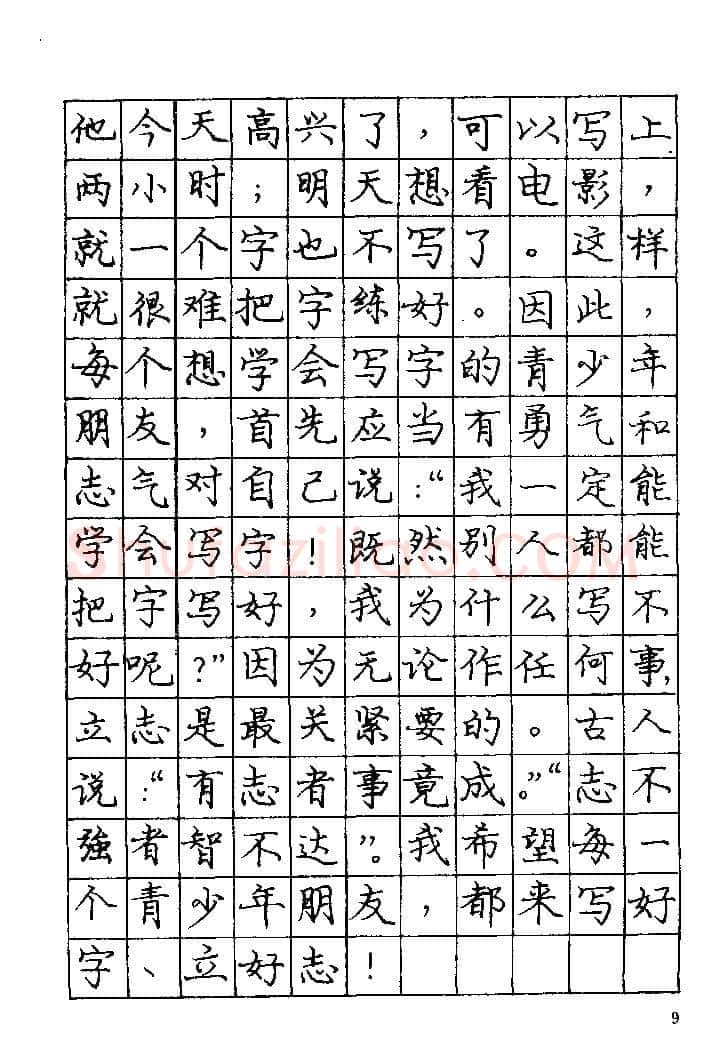 他今天高兴了，可以写上
两小时；明天想看电影，
就一个字也不写了。这样
就很难把字练好。因此，
每个想学会写字的青少年
朋友，首先应当有勇气和
志气对自己说：“我一定能
学会写字！既然别人都能
把字写好，我为什么写不
好呢？”因为无论作任何事，
立志是最关紧要的。古人
说：“有志者事竟成。”“志不
強者智不达”。我希望每一
个青少年朋友，都来写好
字、立好志！
shufaziliao.COM
9